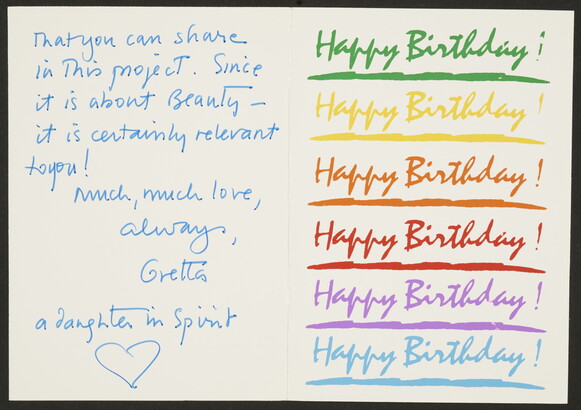 That you can share
in this project. Since
it is about Beauty –
it is certainly relevant
to you!
Much, much love,
always,
Gretta
a daughter in Spirit
Happy Birthday!
Happy Birthday!
Happy Birthday!
Happy Birthday!
Happy Birthday!
Happy Birthday!